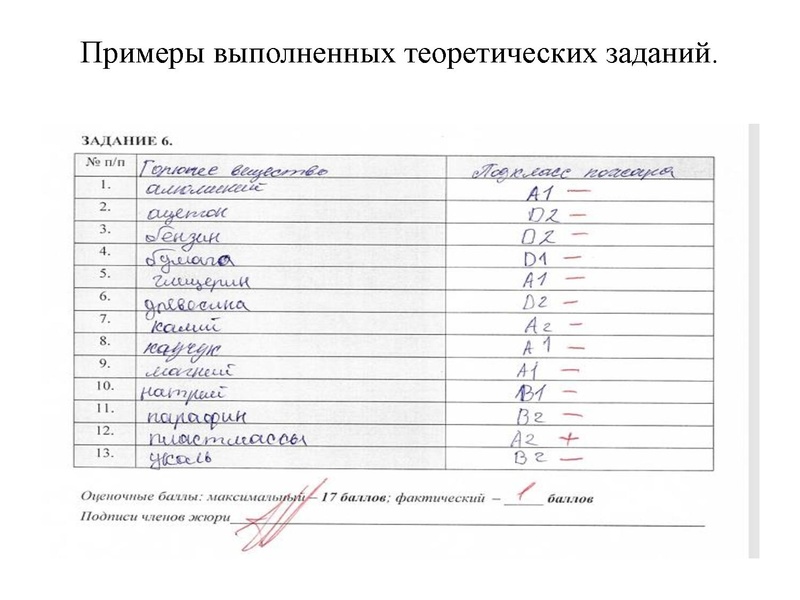 Примеры выполненных теоретических заданий.
ЗАДАНИЕ 6.
№ п/п Горючее вещество Подкласс пожара
1. алюминий А1 —
2. ацетон D2 —
3. бензин D2 —
4. бумага D1 —
5. глицерин А1 —
6. древесина D2 —
7. калий А2 —
8. каучук А1 —
9. магний А1 —
10. натрий В1 —
11. парафин В2 —
12. пластмассы А2 +
13. уголь В2 —
Оценочные баллы: максимальный – 17 баллов; фактический – 1 баллов
Подписи членов жюри